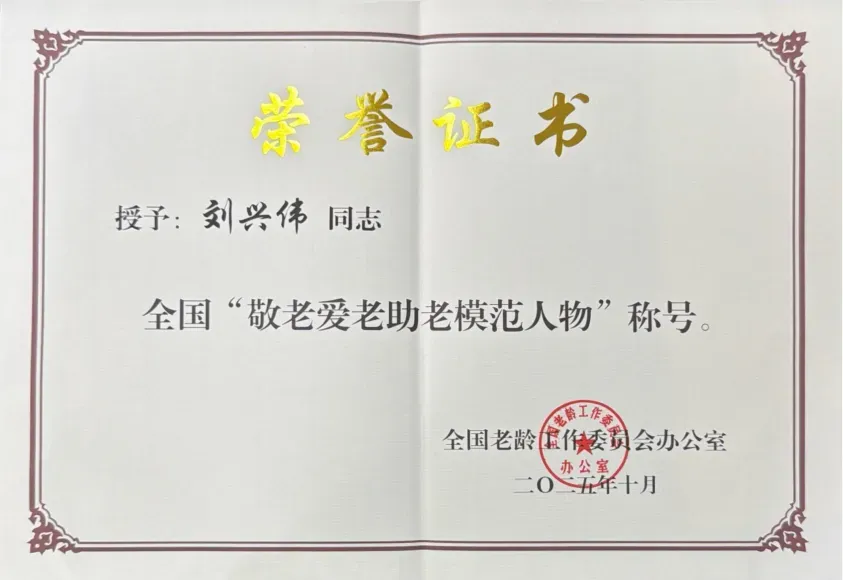 荣誉证书
授予：刘兴伟 同志
全国“敬老爱老助老模范人物”称号。
全国老龄工作委员会办公室
二〇二五年十月
全国老龄工作委员会
办公室